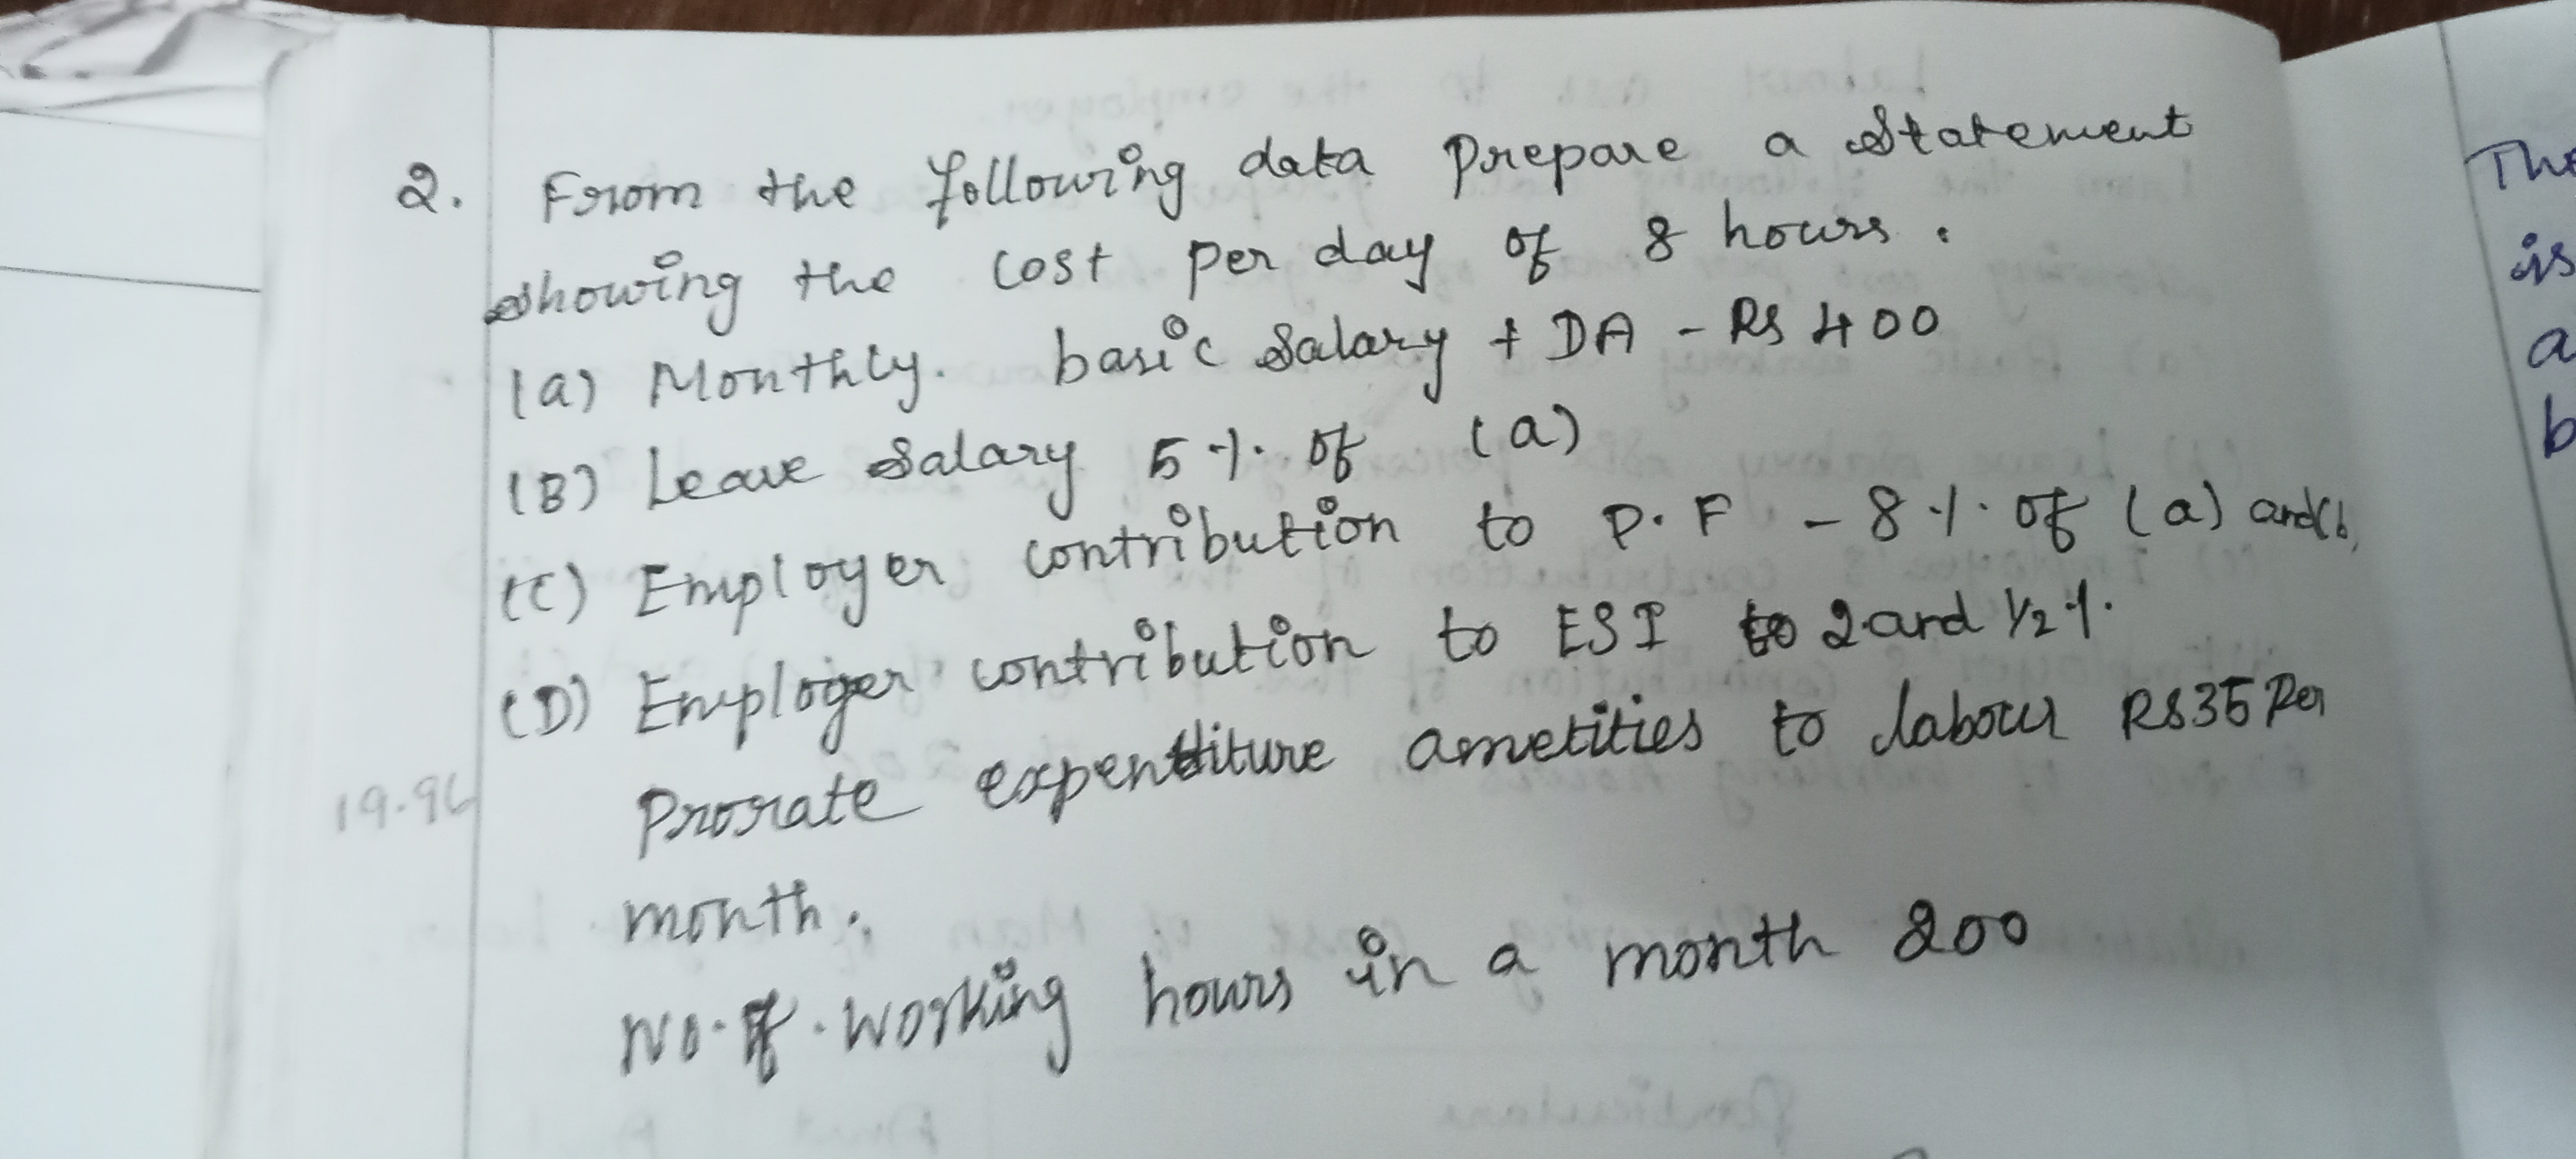 2. From the following data prepare a statement
showing the cost per day of 8 hours.
(a) Monthly. basic salary + DA - Rs 400
(B) Leave salary 5 % of (a)
(C) Employer contribution to P.F - 8 % of (a) and (b
(D) Employer contribution to ESI to 2 and 1/2 %.
19.96
Prorate expenditure ametities to labour Rs 35 Per
month.
No. of. working hours in a month 200
The
is
a
b